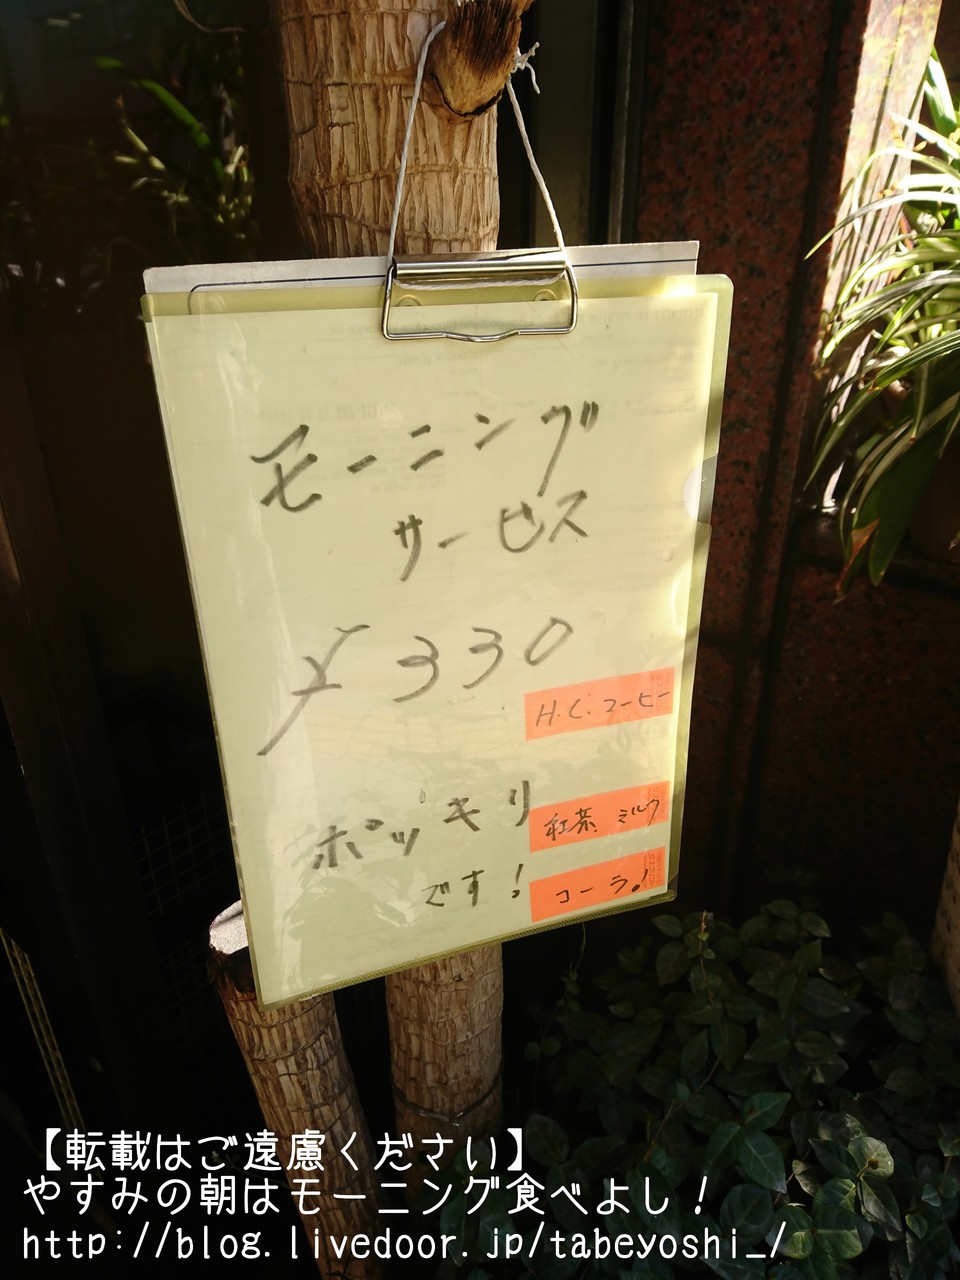 モーニング
サービス
¥330
H.C.コーヒー
ポッキリ
紅茶 ミルク
です!
コーラ!
【転載はご遠慮ください】
やすみの朝はモーニング食べよし!
http://blog.livedoor.jp/tabeyoshi_/